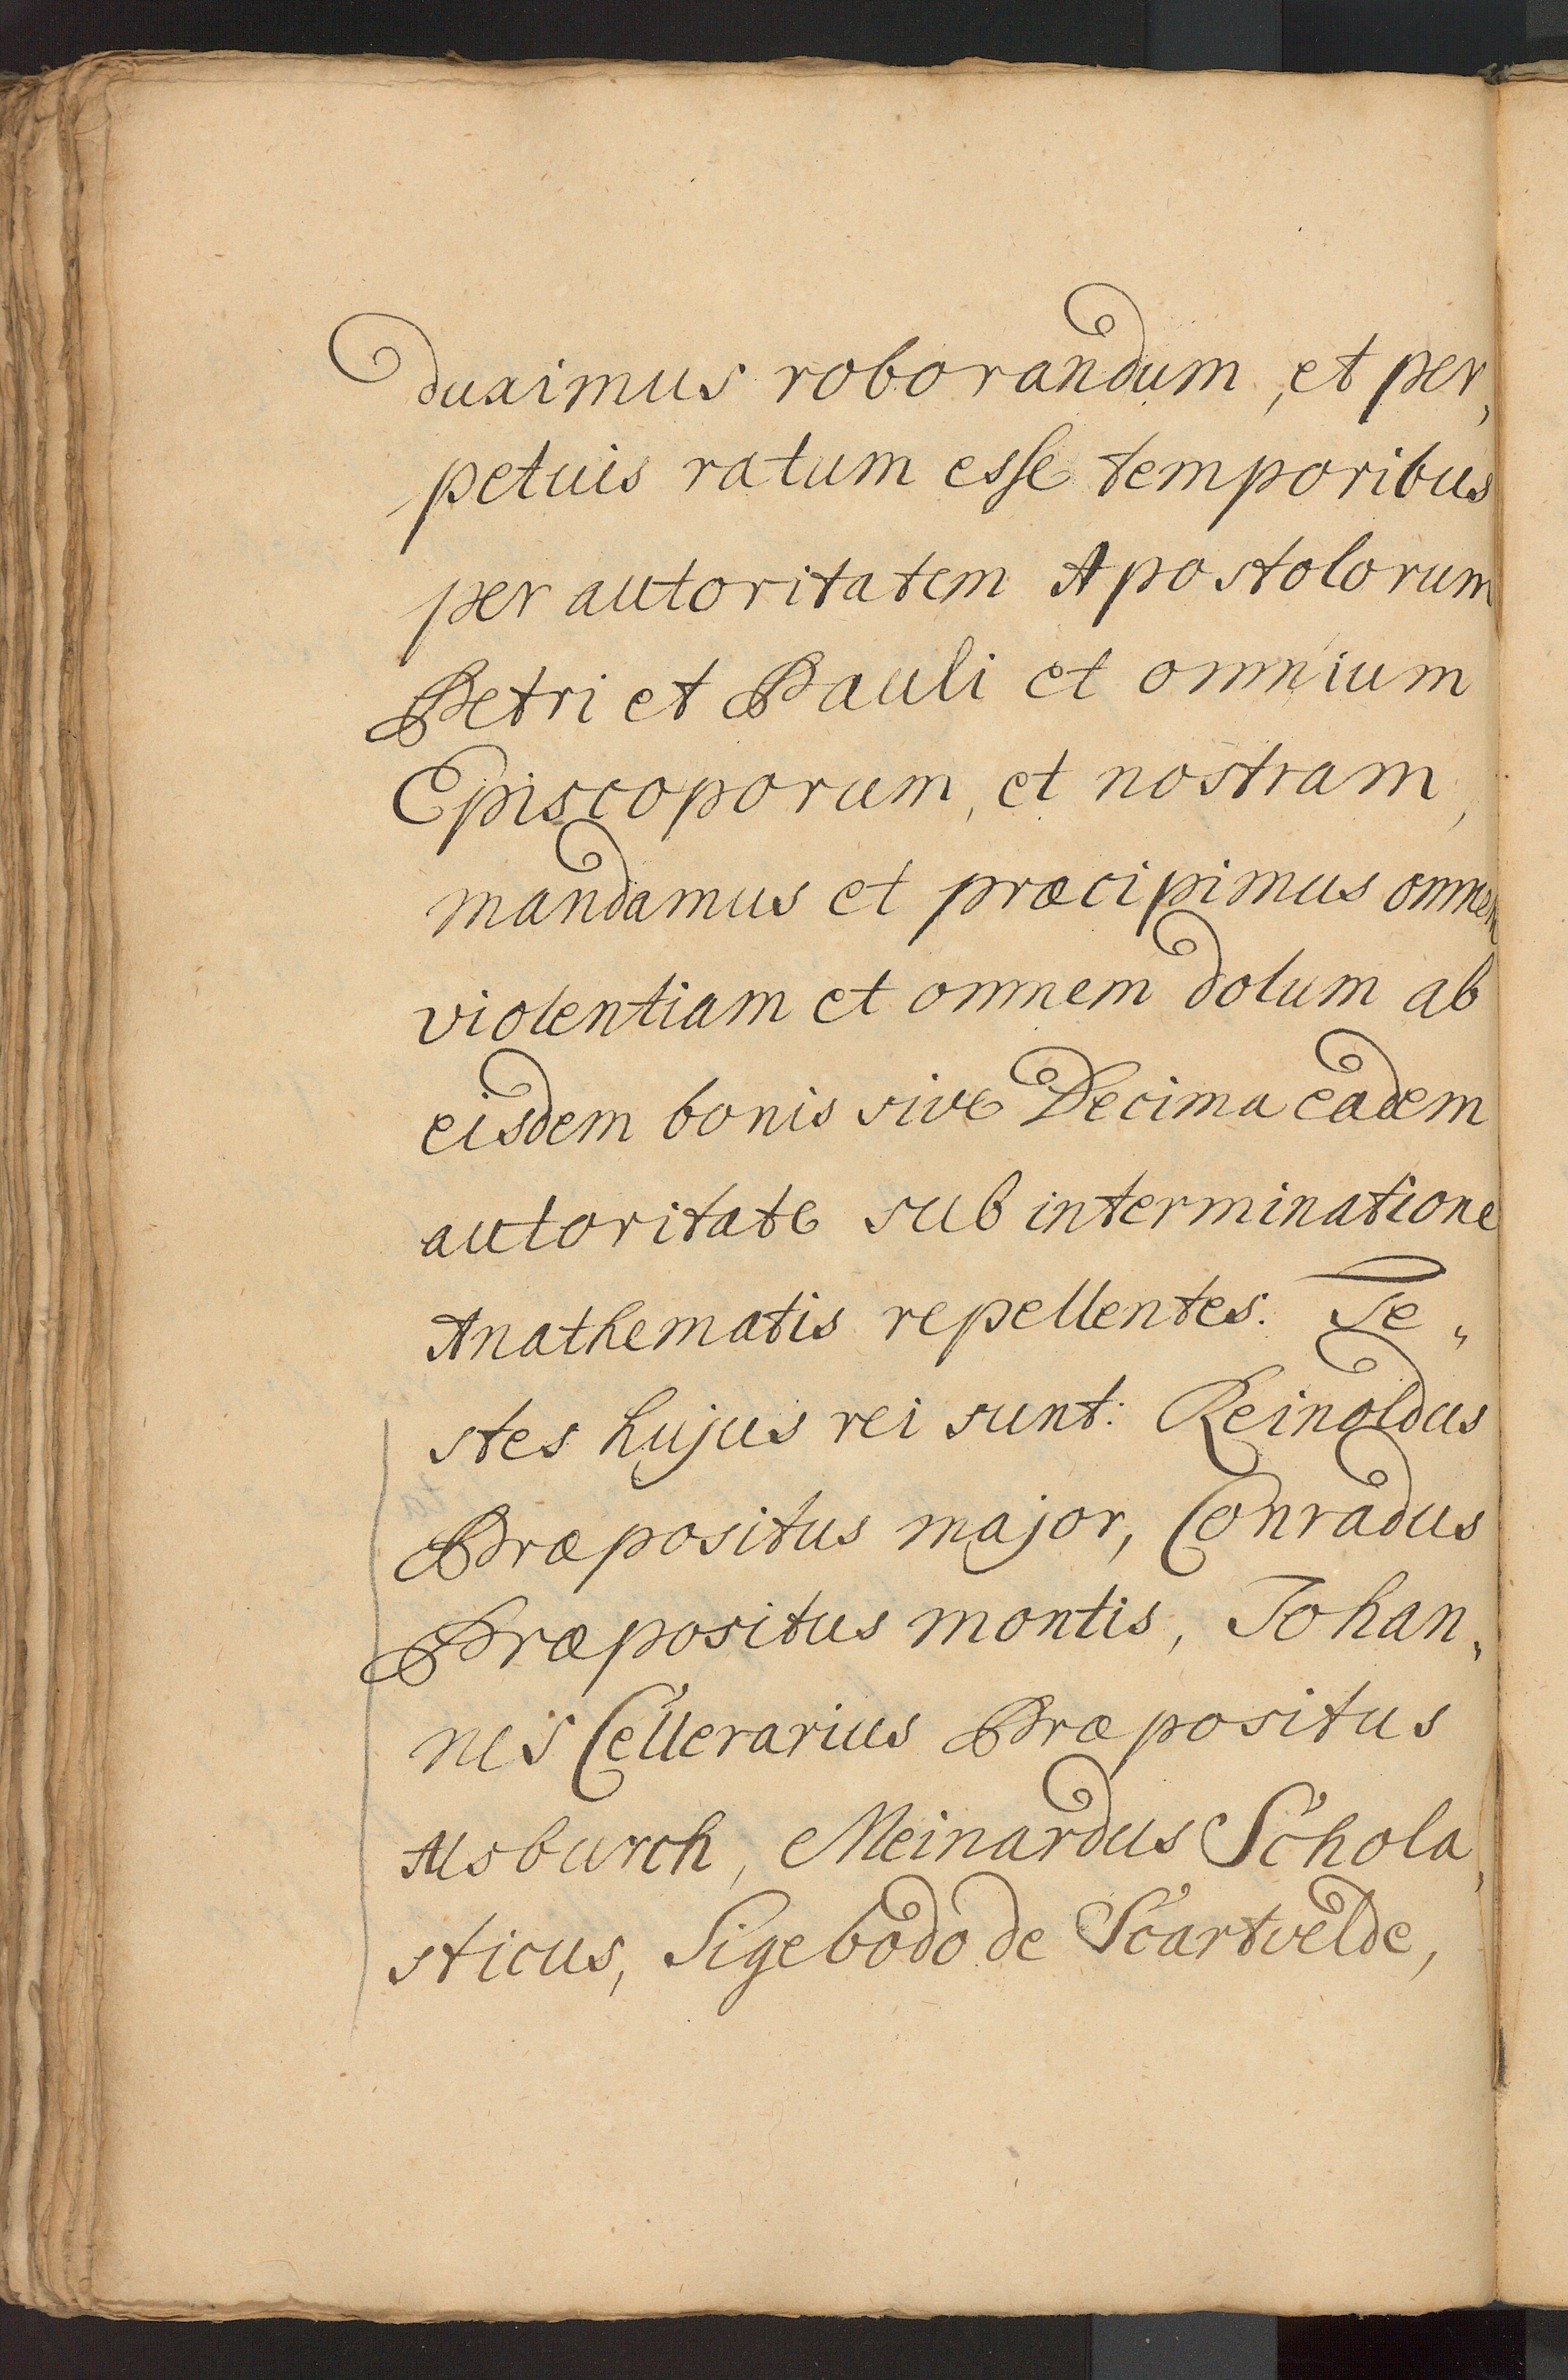 duximus roborandum, et per,,
petuis ratum esse temporibus
per autoritatem Apostolorum
Petri et Pauli et omnium
Episcoporum, et nostram,
mandamus et præcipimus omnem
violentiam et omnem dolum ab
eisdem bonis sive Decima eadem
autoritate sub interminatione
Anathematis repellentes. Te,,
stes hujus rei sunt: Reinoldus
Præpositus major, Conradus
Præpositus montis, Johan,,
nes Cellerarius Præpositus
Alsburch, Meinardus Schola,,
sticus, Sigebodo de Scartvelde,